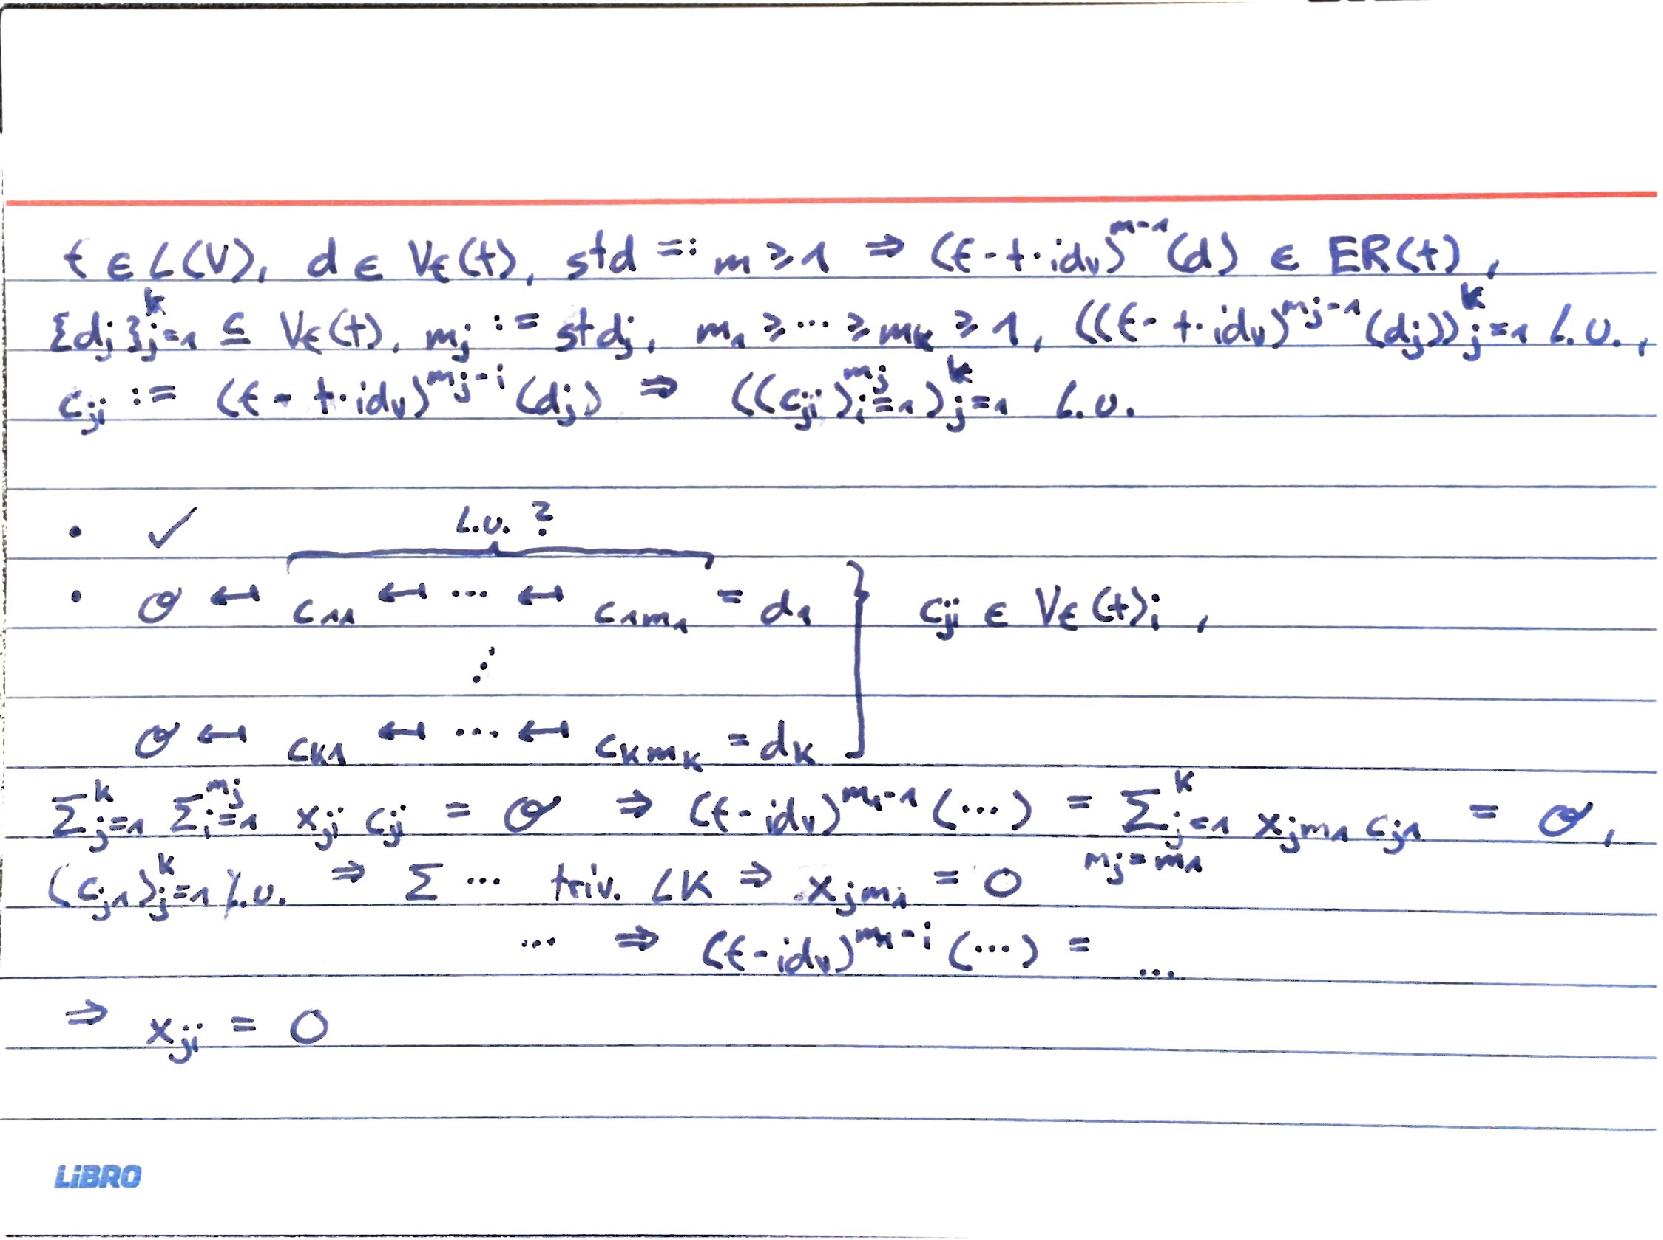 f ∈ L(V), d ∈ V_f(t), st d =: m ≥ 1 ⇒ (f - t·id_V)^{m-1}(d) ∈ ER(t),
{d_j}_{j=1}^k ⊆ V_f(t), m_j := st d_j, m_1 ≥ ··· ≥ m_k ≥ 1, ((f - t·id_V)^{m_j-1}(d_j))_{j=1}^k l.u.,
c_{ji} := (f - t·id_V)^{m_j-i}(d_j) ⇒ ((c_{ji})_{i=1}^{m_j})_{j=1}^k l.u.
• ✓ l.u.?
• 𝒪 ↤ c_{11} ↤ ··· ↤ c_{1m_1} = d_1 } c_{ji} ∈ V_f(t)_i,
⋮
𝒪 ↤ c_{k1} ↤ ··· ↤ c_{km_k} = d_k
∑_{j=1}^k ∑_{i=1}^{m_j} x_{ji} c_{ji} = 𝒪 ⇒ (f - id_V)^{m_1-1}(···) = ∑_{j=1, m_j=m_1}^k x_{jm_1} c_{j1} = 𝒪,
(c_{j1})_{j=1}^k l.u. ⇒ ∑ ··· triv. LK ⇒ x_{jm_1} = 0
··· ⇒ (f - id_V)^{m_1-i}(···) = ...
⇒ x_{ji} = 0
LiBRO